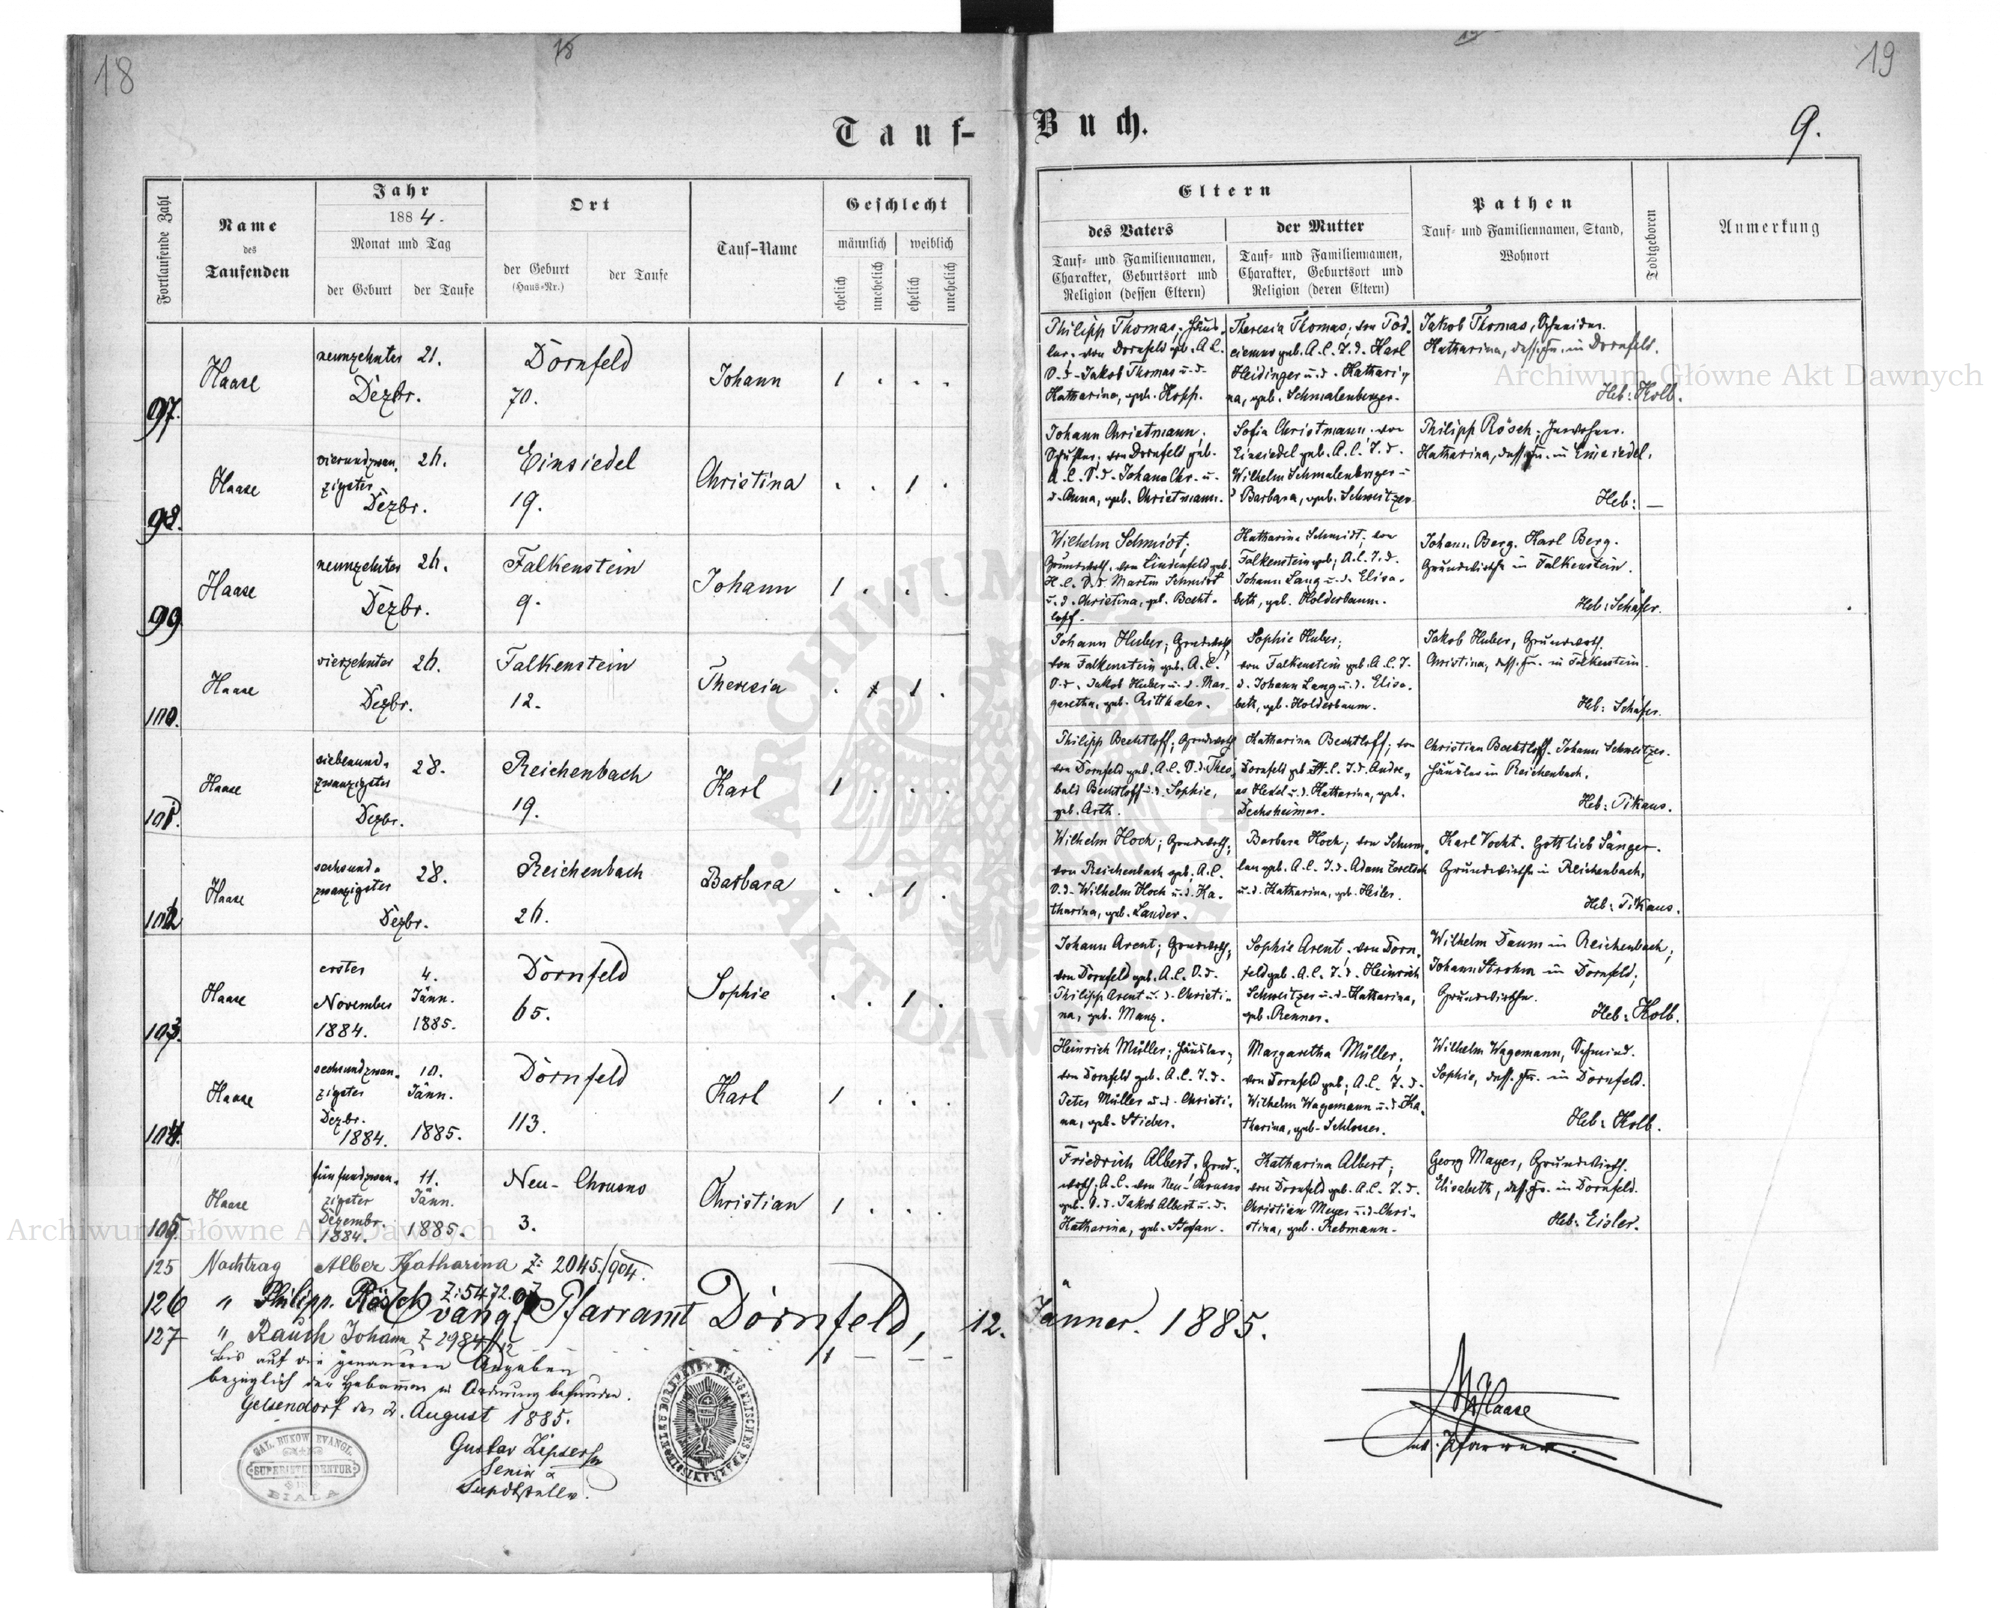 18
18
19
19
Tauf-Buch.
9.
Fortlaufende Zahl
Name
des
Taufenden
Jahr
1884.
Monat und Tag
der Geburt
der Taufe
Ort
der Geburt
(Haus-Nr.)
der Taufe
Tauf-Name
Geschlecht
männlich
weiblich
ehelich
unehelich
ehelich
unehelich
Eltern
des Vaters
Tauf- und Familiennamen,
Charakter, Geburtsort und
Religion (dessen Eltern)
der Mutter
Tauf- und Familiennamen,
Charakter, Geburtsort und
Religion (deren Eltern)
Pathen
Tauf- und Familiennamen, Stand,
Wohnort
Todtgeboren
Anmerkung
97.
Haase
neunzehnter
Dezbr.
21.
Dornfeld
70.
Johann
1
Philipp Thomas; Häus-
ler, von Dornfeld geb. A.C.
V.d. Jakob Thomas u. d.
Katharina, geb. Kopp.
Theresia Thomas; von
geb. A.C. T.d. Karl
Heidinger u.d. Kathari-
na, geb. Schmalenberger.
Jakob Thomas, Schneider.
Katharina, dess. Fr. in Dornfeld.
Heb: Kolb.
98.
Haase
vierundzwan-
zigster
Dezbr.
26.
Einsiedel
19.
Christina
1
Johann Christmann;
von Dornfeld geb.
A.C. V.d. Johann Chr. u.
d. Anna, geb. Christmann.
Sofia Christmann, von
Einsiedel geb. A.C. T.d.
Wilhelm Schmalenberger u
d Barbara, geb. Schweitzer.
Philipp Rösch; Inwohner.
Katharina, dess. Fr. in Einsiedel.
Heb: —
99
Haase
neunzehnter
Dezbr.
26.
Falkenstein
9.
Johann
1
Wilhelm Schmidt;
Grundwirth, von Lindenfeld geb.
A.C. V.d Martin Schmidt
u. d. Christina, gb. Becht-
loff.
Katharina Schmidt; von
Falkenstein geb; A.C. T.d.
Johann Lang u. d. Elisa-
beth, geb. Holderbaum.
Johann Berg. Karl Berg.
Grundwirthe in Falkenstein.
Heb: Schäfer.
100.
Haase
vierzehnter
Dezbr.
26.
Falkenstein
12.
Theresia
1
Johann Huber; Grundwirth,
von Falkenstein geb. A.C.
V.d. Jakob Huber u. d. Mar-
garetha, geb. Ritthaler.
Sophie Huber;
von Falkenstein geb. A.C. T.
d. Johann Lang u. d. Elisa-
beth, geb. Holderbaum.
Jakob Huber, Grundwirth.
Christina, dess. Fr. in Falkenstein.
Heb: Schäfer.
101.
Haase
siebenund-
zwanzigster
Dezbr.
28.
Reichenbach
19.
Karl
1
Philipp Bechtloff; Grundwirth
von Dornfeld geb. A.C. V.d. Theo-
bald Bechtloff u.d. Sophie,
geb. Arth.
Katharina Bechtloff; von
Dornfeld geb. A.C. T.d. Andre-
as u.d. Katharina, geb.
Dechsheimer.
Christian Bechtloff. Johann Schweitzer.
Häusler in Reichenbach.
Heb: Tikaus.
102
Haase
sechsund-
zwanzigster
Dezbr.
28.
Reichenbach
26.
Barbara
1
Wilhelm Hoch; Grundwirth;
von Reichenbach geb; A.C.
V.d. Wilhelm Hoch u.d. Ka-
tharina, geb. Lander.
Barbara Hoch; von
geb. A.C. T.d. Adam
u.d. Katharina, geb. Heiler.
Karl Vocht. Gottlieb Sänger.
Grundwirthe in Reichenbach.
Heb: Tikaus.
103.
Haase
erster
November
1884.
4.
Jänn.
1885.
Dornfeld
65.
Sophie
1
Johann Arent; Grundwirth;
von Dornfeld geb. A.C. V.d.
Philipp Arent u. d. Christi-
na, geb. Manz.
Sophie Arent, von Dorn-
feld geb. A.C. T.d. Heinrich
Schweitzer u.d. Katharina,
geb. Renner.
Wilhelm Daum in Reichenbach;
Johann Strohm in Dornfeld;
Grundwirthe.
Heb: Kolb.
104.
Haase
sechsundzwan-
zigster
Dezbr.
1884.
10.
Jänn.
1885.
Dornfeld
113.
Karl
1
Heinrich Müller; Häusler,
von Dornfeld geb. A.C. T.d.
Peter Müller u. d. Christi-
na, geb. Stieber.
Margaretha Müller,
von Dornfeld geb; A.C. T.d.
Wilhelm Wagemann u.d. Ka-
tharina, geb. Schlosser.
Wilhelm Wagemann, Schmied.
Sophie, dess. Fr. in Dornfeld.
Heb: Kolb.
105.
Haase
fünfundzwan-
zigster
Dezembr.
1884.
11.
Jänn.
1885.
Neu-Chrusno
3.
Christian
1
Friedrich Albert, Grund-
wirth; A.C. von Neu-Chrusno
geb. V.d. Jakob Albert u. d.
Katharina, geb. Stefan.
Katharina Albert;
von Dornfeld geb. A.C. T.d.
Christian Meyer u.d. Chri-
stina, geb. Rebmann.
Georg Mayer, Grundwirth.
Elisabeth, dess. Fr. in Dornfeld.
Heb: Eisler.
125 Nachtrag Alber Katharina Z: 2045/904.
126 " Philipp. Rösch Z: 5472.07
Evang. Pfarramt Dornfeld, 12. Jänner. 1885.
127 " Rauch Johann Z 2984/12
Bis auf die genaueren Angaben
bezüglich der Hebammen in Ordnung befunden.
Gelsendorf den 2. August 1885.
Gustav Zipser
Senior &
Supdtstellv.
GAL. BUKOW. EVANGL.
SUPERINTENDENTUR
BIALA
EVANGELISCHES PFARRAMT
Haase
Pfarrer.
Archiwum Główne Akt Dawnych
Archiwum Główne Akt Dawnych
ARCHIWUM
AKT DAWNYCH